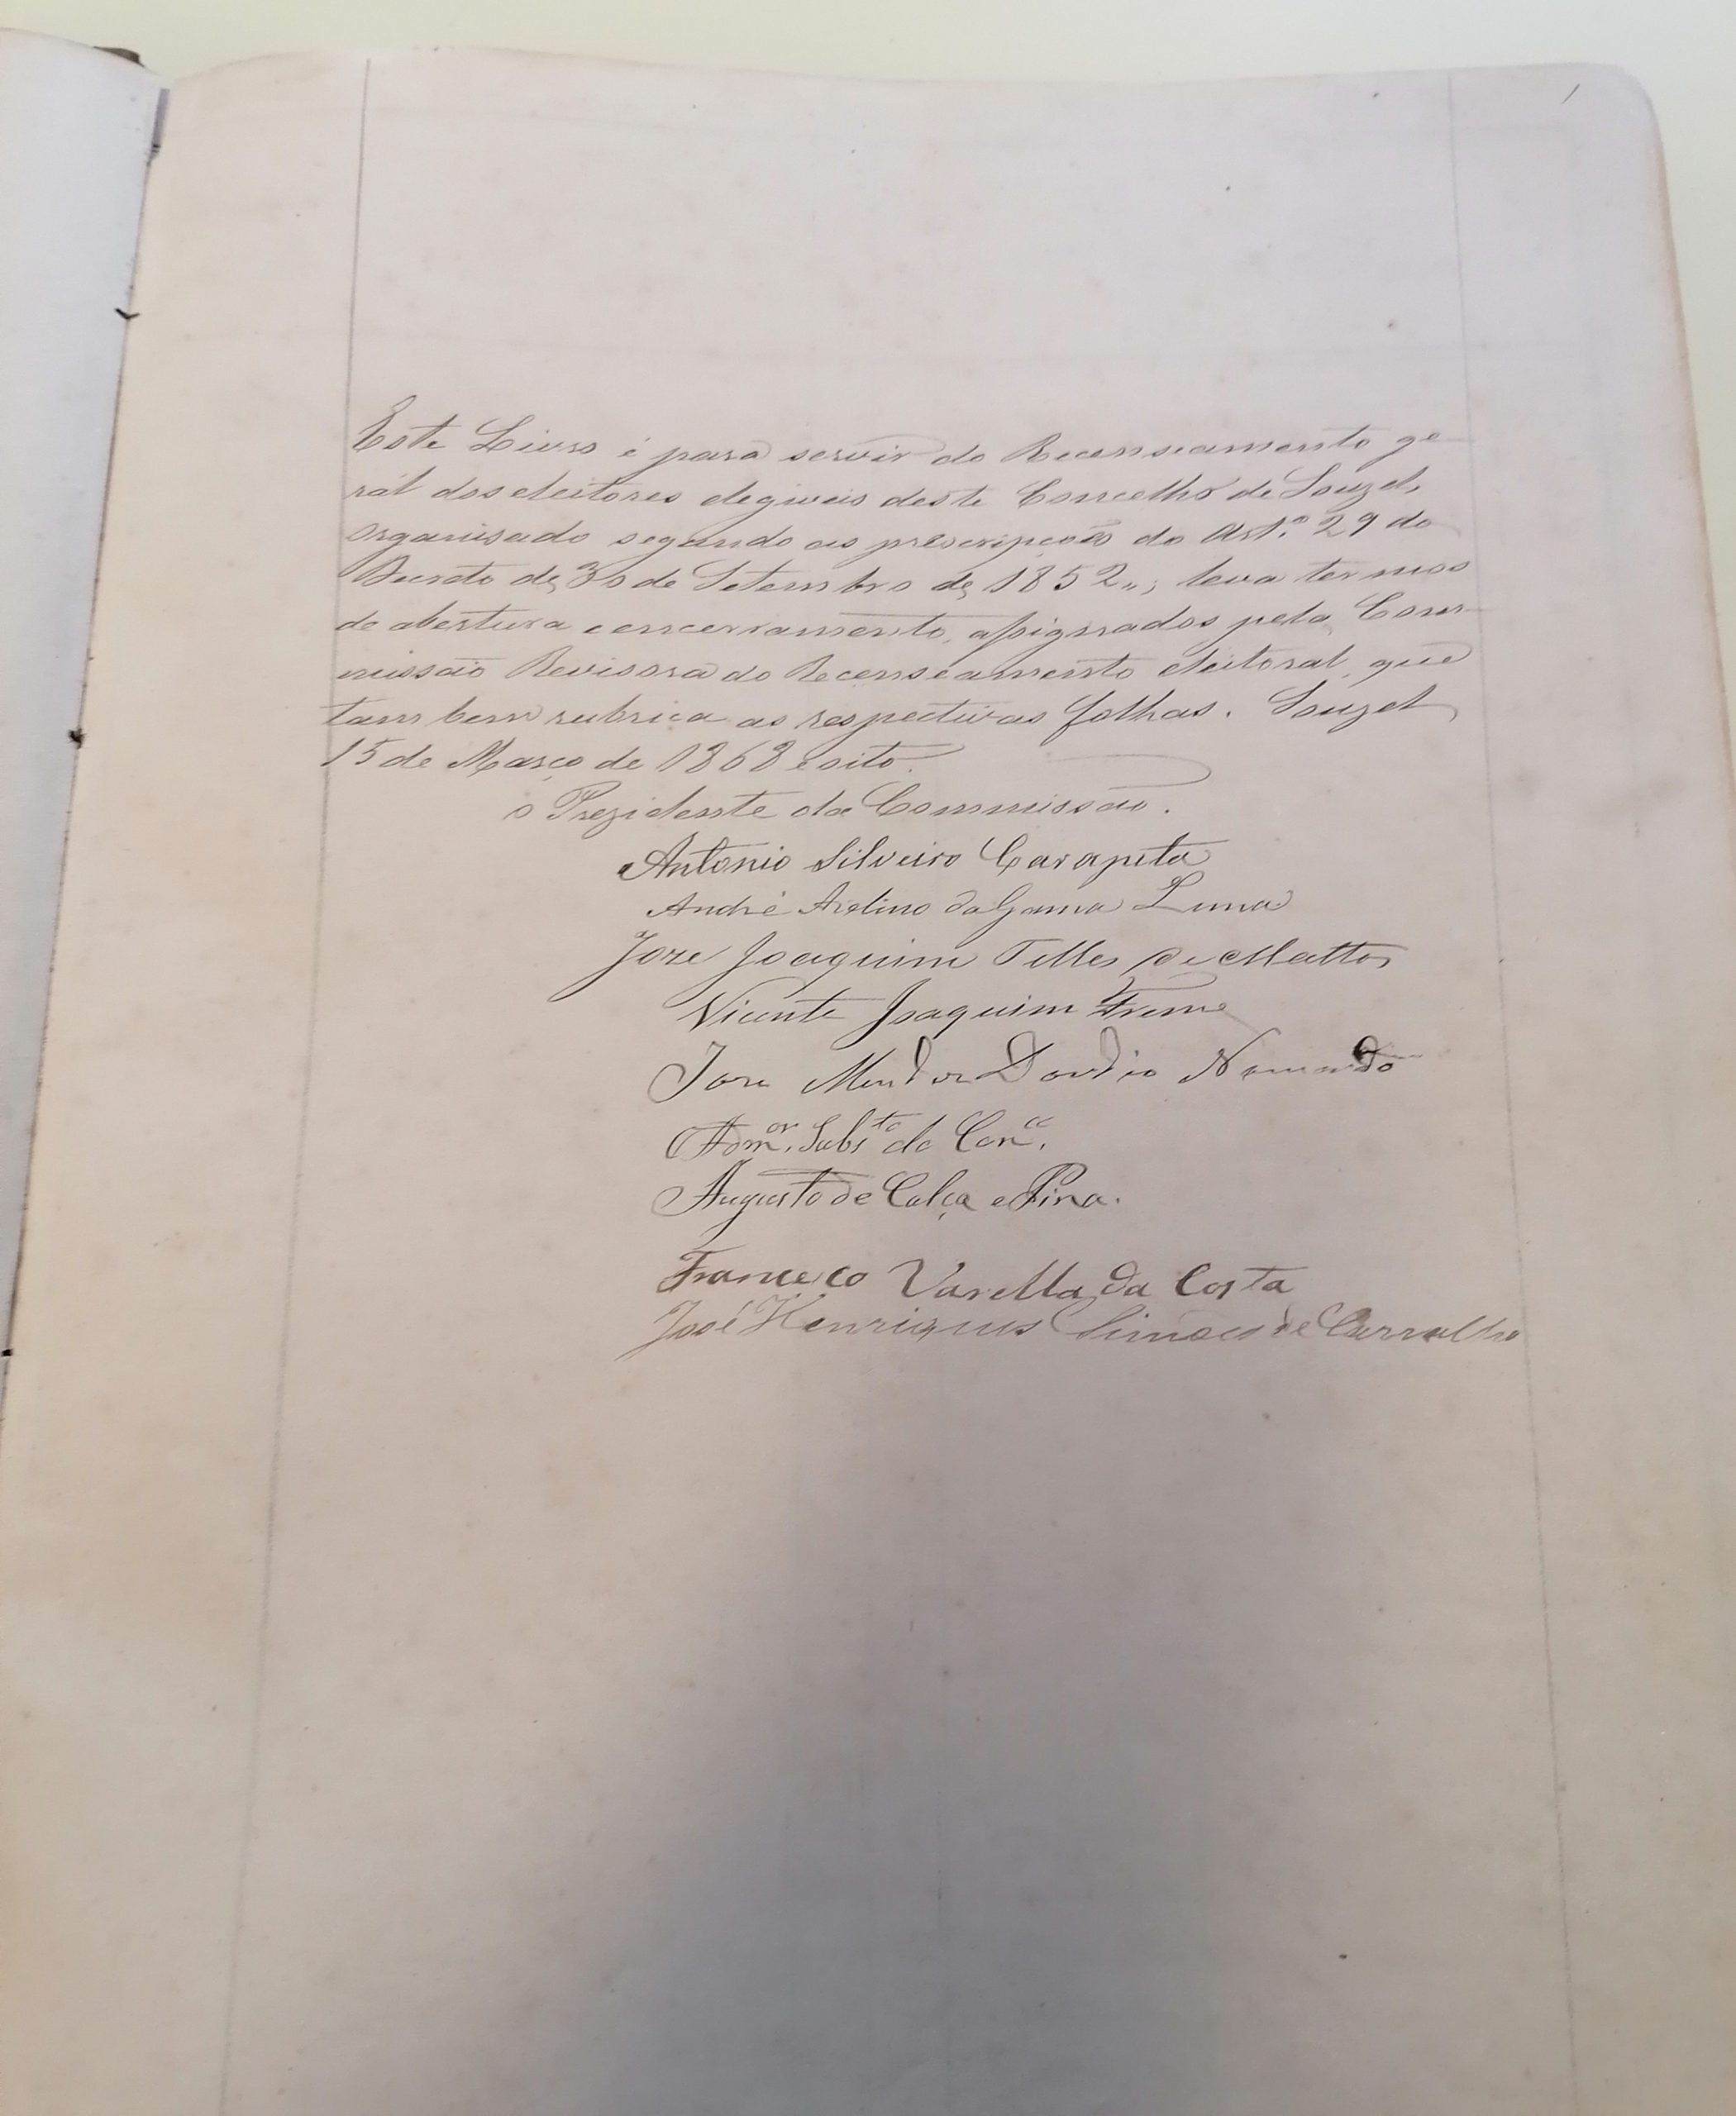 1
Este Livro é para servir do Recenseamento ge-
ral dos eleitores elegiveis deste Concelho de Souzel,
organisado segundo as prescripções do Art.º 29 do
Decreto de 30 de Setembro de 1852,, leva termos
de abertura e encerramento, assignados pela Com-
missão Revisora do Recenseamento eleitoral, que
tambem rubrica as respectivas folhas. Souzel
15 de Março de 1868 e oito.
O Prezidente da Commissão.
Antonio Silveiro Carapeta
André Avelino da Gama Luna
Joze Joaquim Telles de Mattos
Vicente Joaquim
Joze Mendes Dordio
Adm.or Subs.to do Con.co
Augusto de Calça e Pina.
Francisco Varella da Costa
José Henriques Simões de Carvalho